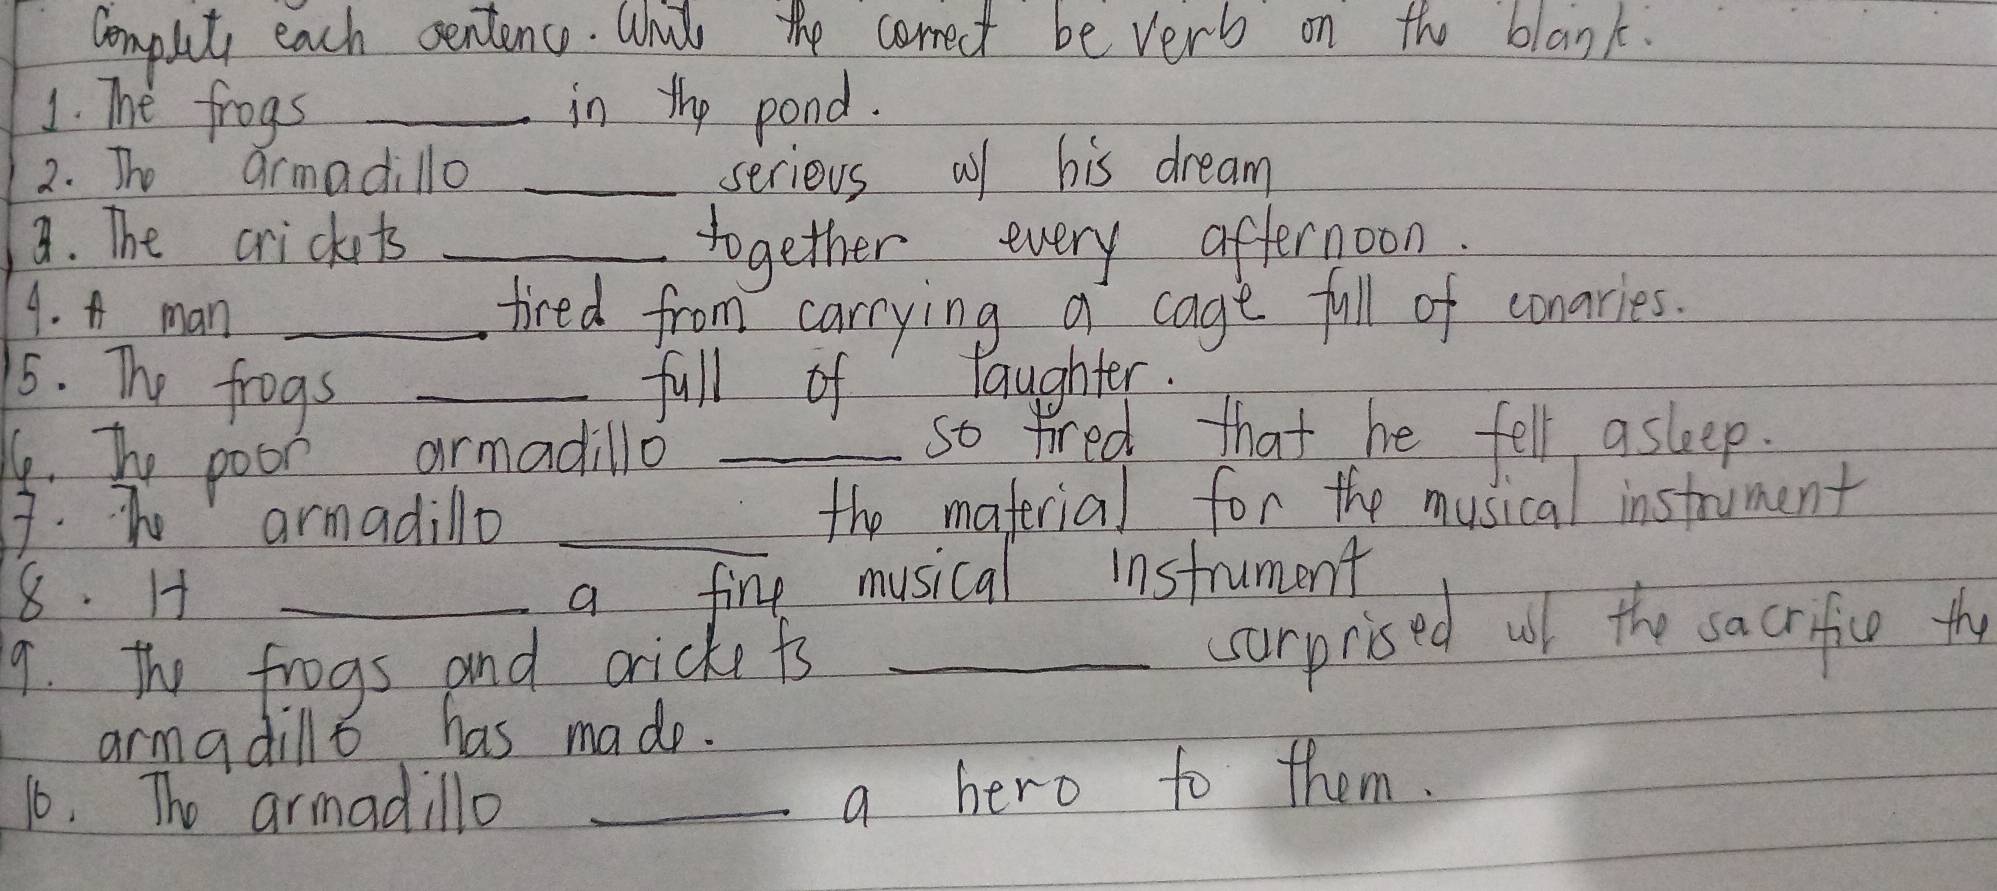 Complete each sentence. Write the correct be verb on the blank.
1. The frogs ______ in the pond.
2. The armadillo ______ serious w/ his dream
3. The crickets ______ together every afternoon.
4. A man ______ tired from carrying a cage full of conaries.
5. The frogs ______ full of laughter.
6. The poor armadillo ______ so tired that he fell asleep.
7. The armadillo ______ the material for the musical instrument
8. It ______ a fine musical instrument
9. The frogs and crickets ______ surprised w/ the sacrifice the
armadillo has made.
10. The armadillo ______ a hero to them.